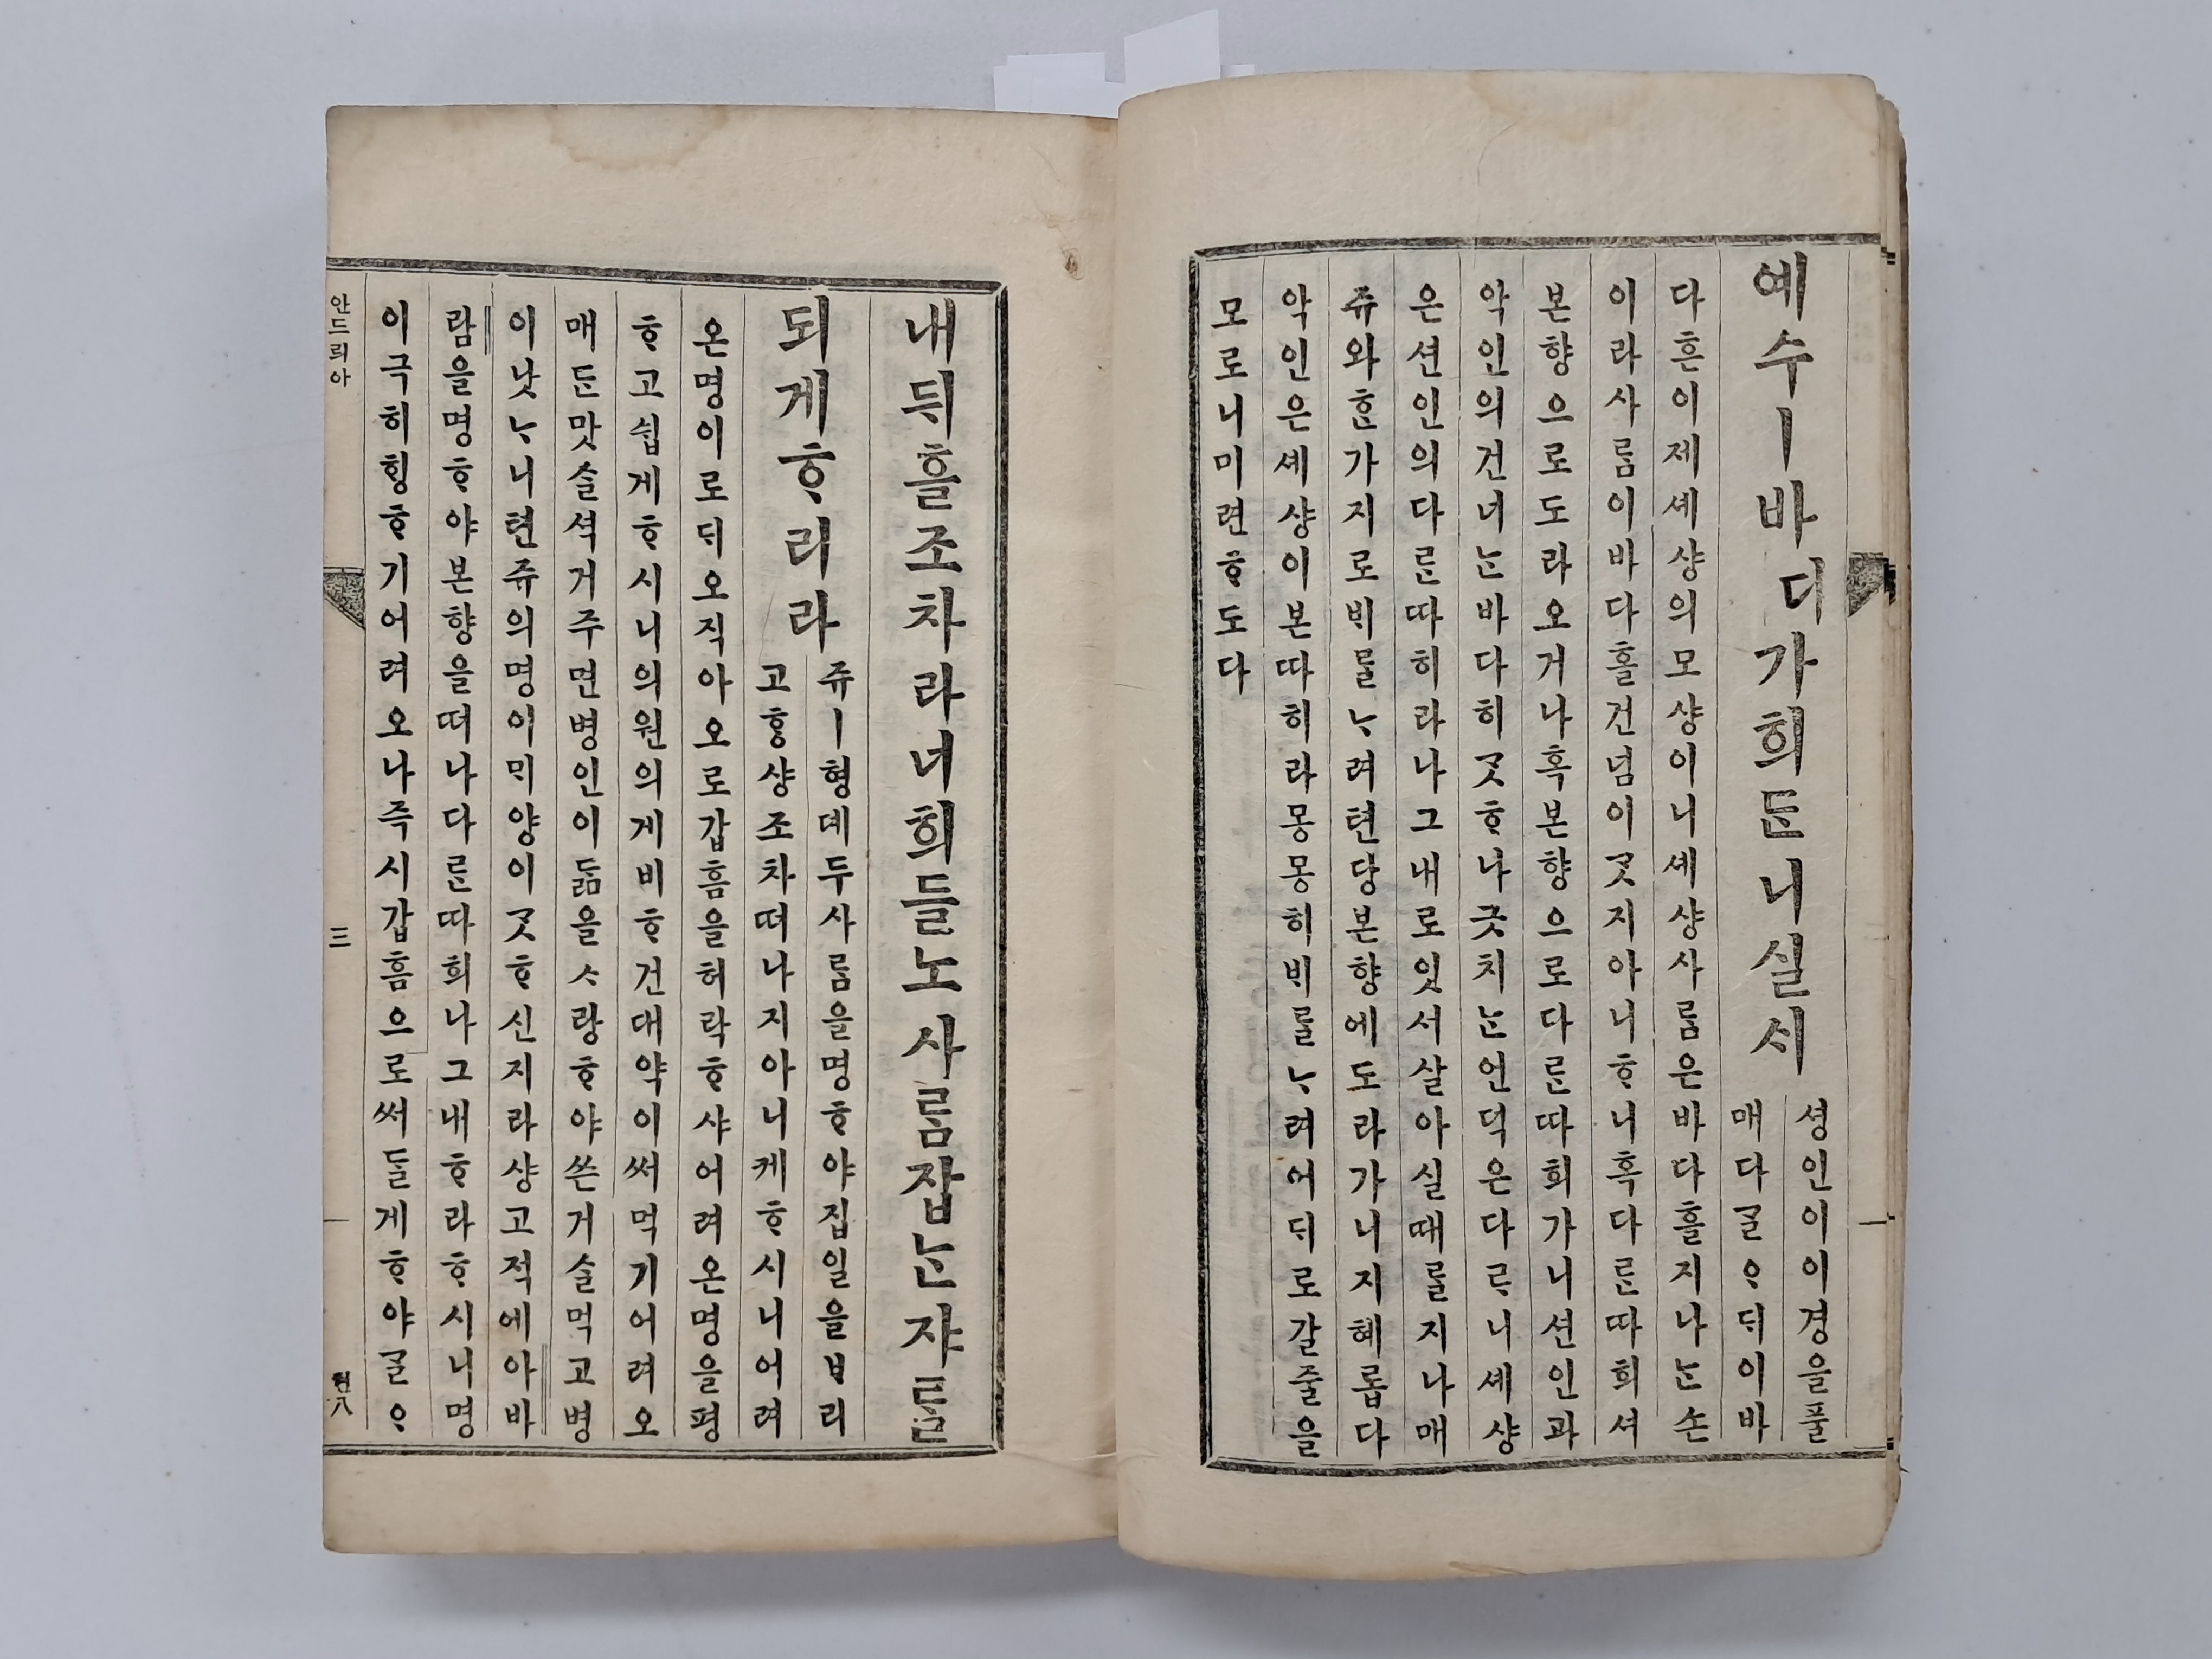 예수ㅣ바ᄃᆡ가희ᄃᆞᆫ니실ᄉᆡ
셩인이이경을풀
매다ᄀᆞᆯᄋᆞᄃᆡ이바
다흔이제셰샹의모샹이니셰샹사ᄅᆞᆷ은바다흘지나ᄂᆞᆫ손
이라사ᄅᆞᆷ이바다흘건넘이ᄀᆞᆺ지아니ᄒᆞ니혹다ᄅᆞᆫ따희셔
본향으로도라오거나혹본향으로다ᄅᆞᆫ따희가니션인과
악인의건너ᄂᆞᆫ바다히ᄀᆞᆺᄒᆞ나긋치ᄂᆞᆫ언덕은다ᄅᆞ니셰샹
은션인의다ᄅᆞᆫ따히라나그내로잇서살아실때ᄅᆞᆯ지나매
쥬와ᄒᆞᆫ가지로ᄇᆡᄅᆞᆯᄂᆞ려텬당본향에도라가니지혜롭다
악인은셰샹이본따히라몽몽히ᄇᆡᄅᆞᆯᄂᆞ려어ᄃᆡ로갈줄을
모로니미련ᄒᆞ도다
내ᄃᆡ흘조차라너희들노사ᄅᆞᆷ잡ᄂᆞᆫ쟈ᄃᆞᆯ
되게ᄒᆞ리라
쥬ㅣ형뎨두사ᄅᆞᆷ을명ᄒᆞ야집일을ᄇᆞ리
고ᄒᆞᆼ샹조차떠나지아니케ᄒᆞ시니어려
온명이로ᄃᆡ오직아오로갑흠을허락ᄒᆞ샤어려온명을평
ᄒᆞ고쉽게ᄒᆞ시니의원의게비ᄒᆞ건대약이써먹기어려오
매ᄃᆞᆫ맛슬셕거주면병인이ᄃᆞᆲ을ᄉᆞ랑ᄒᆞ야쓴거슬먹고병
이낫ᄂᆞ니텬쥬의명이ᄆᆡ양이ᄀᆞᆺᄒᆞ신지라샹고적에아바
람을명ᄒᆞ야본향을떠나다ᄅᆞᆫ따희나그내ᄒᆞ라ᄒᆞ시니명
이극히ᄒᆡᆼᄒᆞ기어려오나즉시갑흠으로써ᄃᆞᆯ게ᄒᆞ야ᄀᆞᆯᄋᆞ
안드릐아
三
텬八